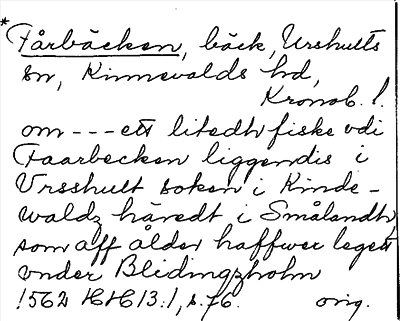 *Fårbäcken, bäck, Urshults
sn, Kinnevalds hd,
Kronob. l.
om --- ett litedh fiske vdi
Faarbecken liggendis i
Vrsshult soken i Kinde-
waldz häredt i Smålandh,
som aff ålder haffwer legett
vnder Blidingzholm
1562 HH 13:1, s. 76. orig.